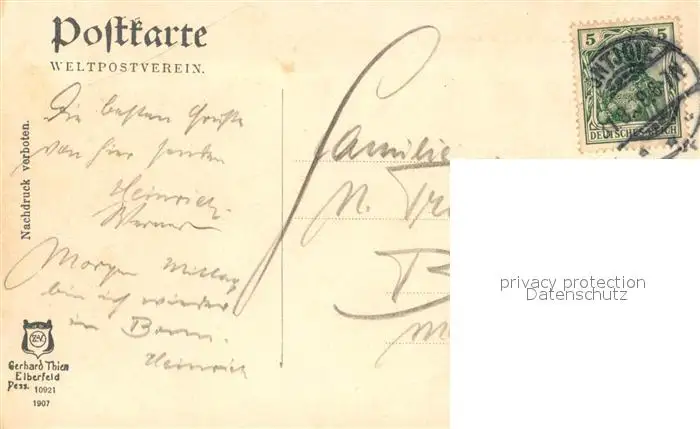 Postkarte
WELTPOSTVEREIN.
Die besten Grüße
von hier senden
Heinrich
Werner
Morgen Mittag
bin ich wieder
in Bonn.
Heinrich
Nachdruck verboten.
Gerhard Thien
Elberfeld
Dess. 10921
1907
Familie
N.
B
5 5
DEUTSCHES REICH
MONTJOIE
privacy protection
Datenschutz